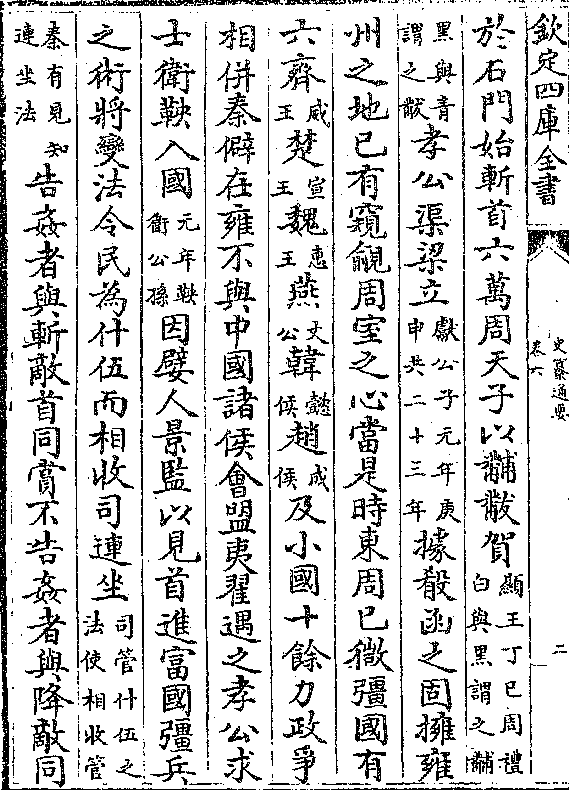 欽定四庫全書
史纂通要
卷六
二
於石門始斬首六萬周天子以黼黻賀顯王丁巳周禮白與黑謂之黼
黑與青謂之黻孝公渠梁立獻公子元年庚申共二十三年據殽函之固擁雍
州之地已有窺覦周室之心當是時東周已微彊國有
六齊威王楚宣王魏惠王燕文公韓懿侯趙成侯及小國十餘力政爭
相併秦僻在雍不與中國諸侯會盟夷翟遇之孝公求
士衛鞅入國元年鞅衛公孫因嬖人景監以見首進富國彊兵
之術將變法令民為什伍而相收司連坐司管什伍之法使相收管
秦有見知連坐法告姦者與斬敵首同賞不告姦者與降敵同